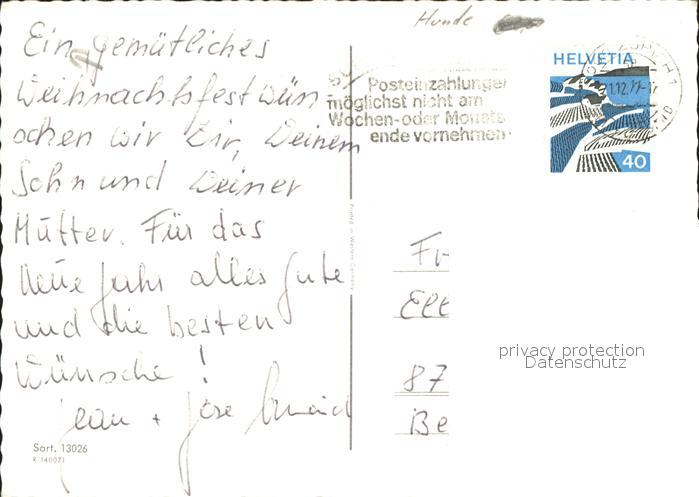 Hunde
Ein gemütliches
Weihnachtsfest wün
schen wir Dir, Deinem
Sohn und Deiner
Mutter. Für das
Neue Jahr alles Gute
und die besten
Wünsche!
Jean + José
Sort. 13026
K 140071
Printed in Western Germany
Posteinzahlungen
möglichst nicht am
Wochen- oder Monats-
ende vornehmen
HELVETIA
40
Fr
Ell
87
Be
privacy protection
Datenschutz